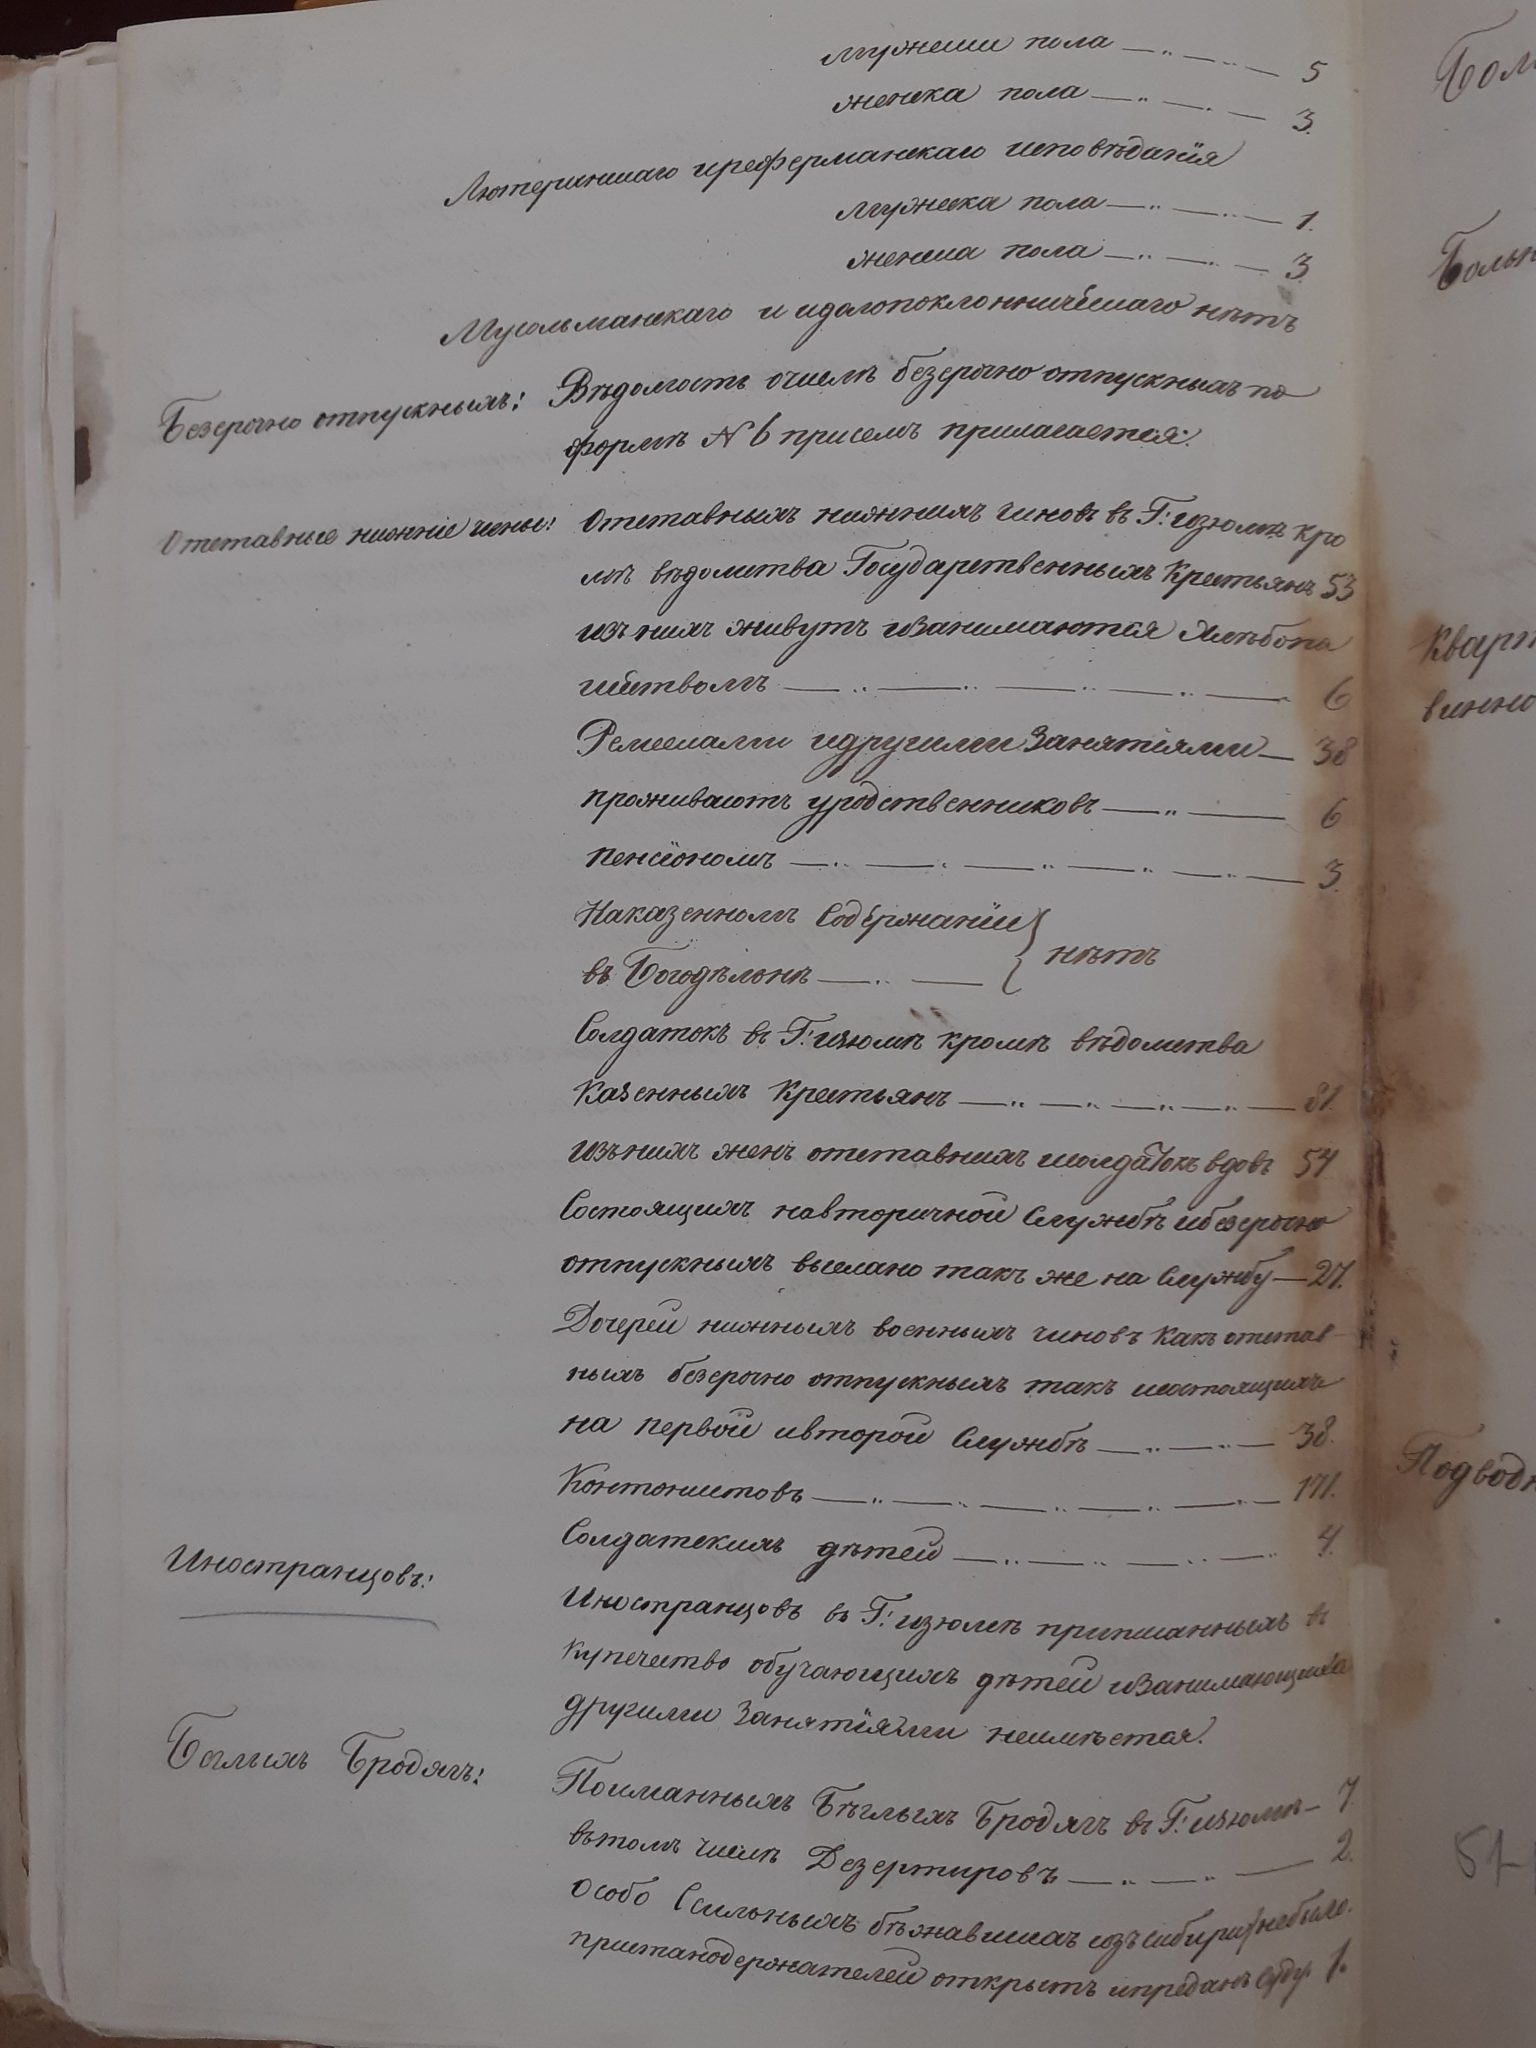 мужескаго пола — „ — „ — 5
женска пола — „ — „ — 3.
Лютеранскаго иреформанскаго исповѣданія
мужеска пола — „ — „ — 1.
женска пола — „ — „ — 3
Мусольманскаго и идолопоклонническаго нѣтъ
Безсрочно отпускныхъ: Вѣдомость очислѣ безсрочно отпускныхъ по
формѣ № 6 присемъ прилагается.
Отставные нижніе чины: Отставныхъ нижнихъ чиновъ въ Г: изюмѣ кро
мѣ вѣдомства Государственныхъ Крестьянъ 53
изънихъ живутъ изанимаются Хлѣбопа
шествомъ — „ — „ — „ — „ — 6
Ремеслами идругими Занятіями — 38
проживаютъ уродственниковъ — „ — 6
пенсіономъ — „ — „ — „ — „ — „ — 3.
Наказенномъ Содержаніи
въ Богодѣльнѣ — „ — } нѣтъ
Солдатокъ въ Г: изюмѣ кромѣ вѣдомства
Казенныхъ Крестьянъ — „ — „ — „ — „ — 81.
изънихъ женъ отставнихъ исолдатокъ вдовъ 54
Состоящихъ навторичной Службѣ ибезсрочно
отпускныхъ выслано такъ же на Службу — 27.
Дочерей нижныхъ военныхъ чиновъ Какъ отстав-
ныхъ безсрочно отпускныхъ такъ исостоящихъ
на первой ивторой Службѣ — „ — „ — 38.
Контонистовъ — „ — „ — „ — „ — „ — 171.
Солдатскихъ дѣтей — „ — „ — „ — „ 4.
Иностранцовъ: Иностранцовъ въ Г: изюмѣ приписанныхъ въ
купечество обучающихъ дѣтей изанимающихся
другими Занятіями неимѣется.
Бѣглыхъ Бродягъ: Поиманныхъ Бѣглыхъ Бродягъ въ Г: изюмѣ — 7
вътомъ числѣ Дезертировъ — „ — „ — 2.
Особо Ссыльныхъ бѣжавшихъ изъ сибири небыло.
пристанодержателей открытъ ипреданъ Суду. 1.
Бол
Больн
Кварт
винно
Подводн